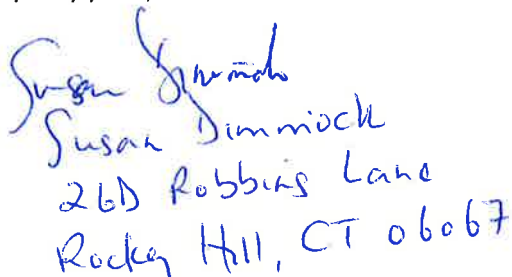 Susan Dimmock
Susan Dimmock
26D Robbins Lane
Rocky Hill, CT 06067